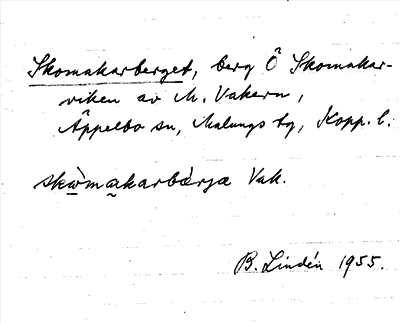 Skomakarberget, berg Ö Skomakar-
viken av M. Vakern,
Äppelbo sn, Malungs tg, Kopp. l.
skòmakarbærja Vak.
B. Lindén 1955.